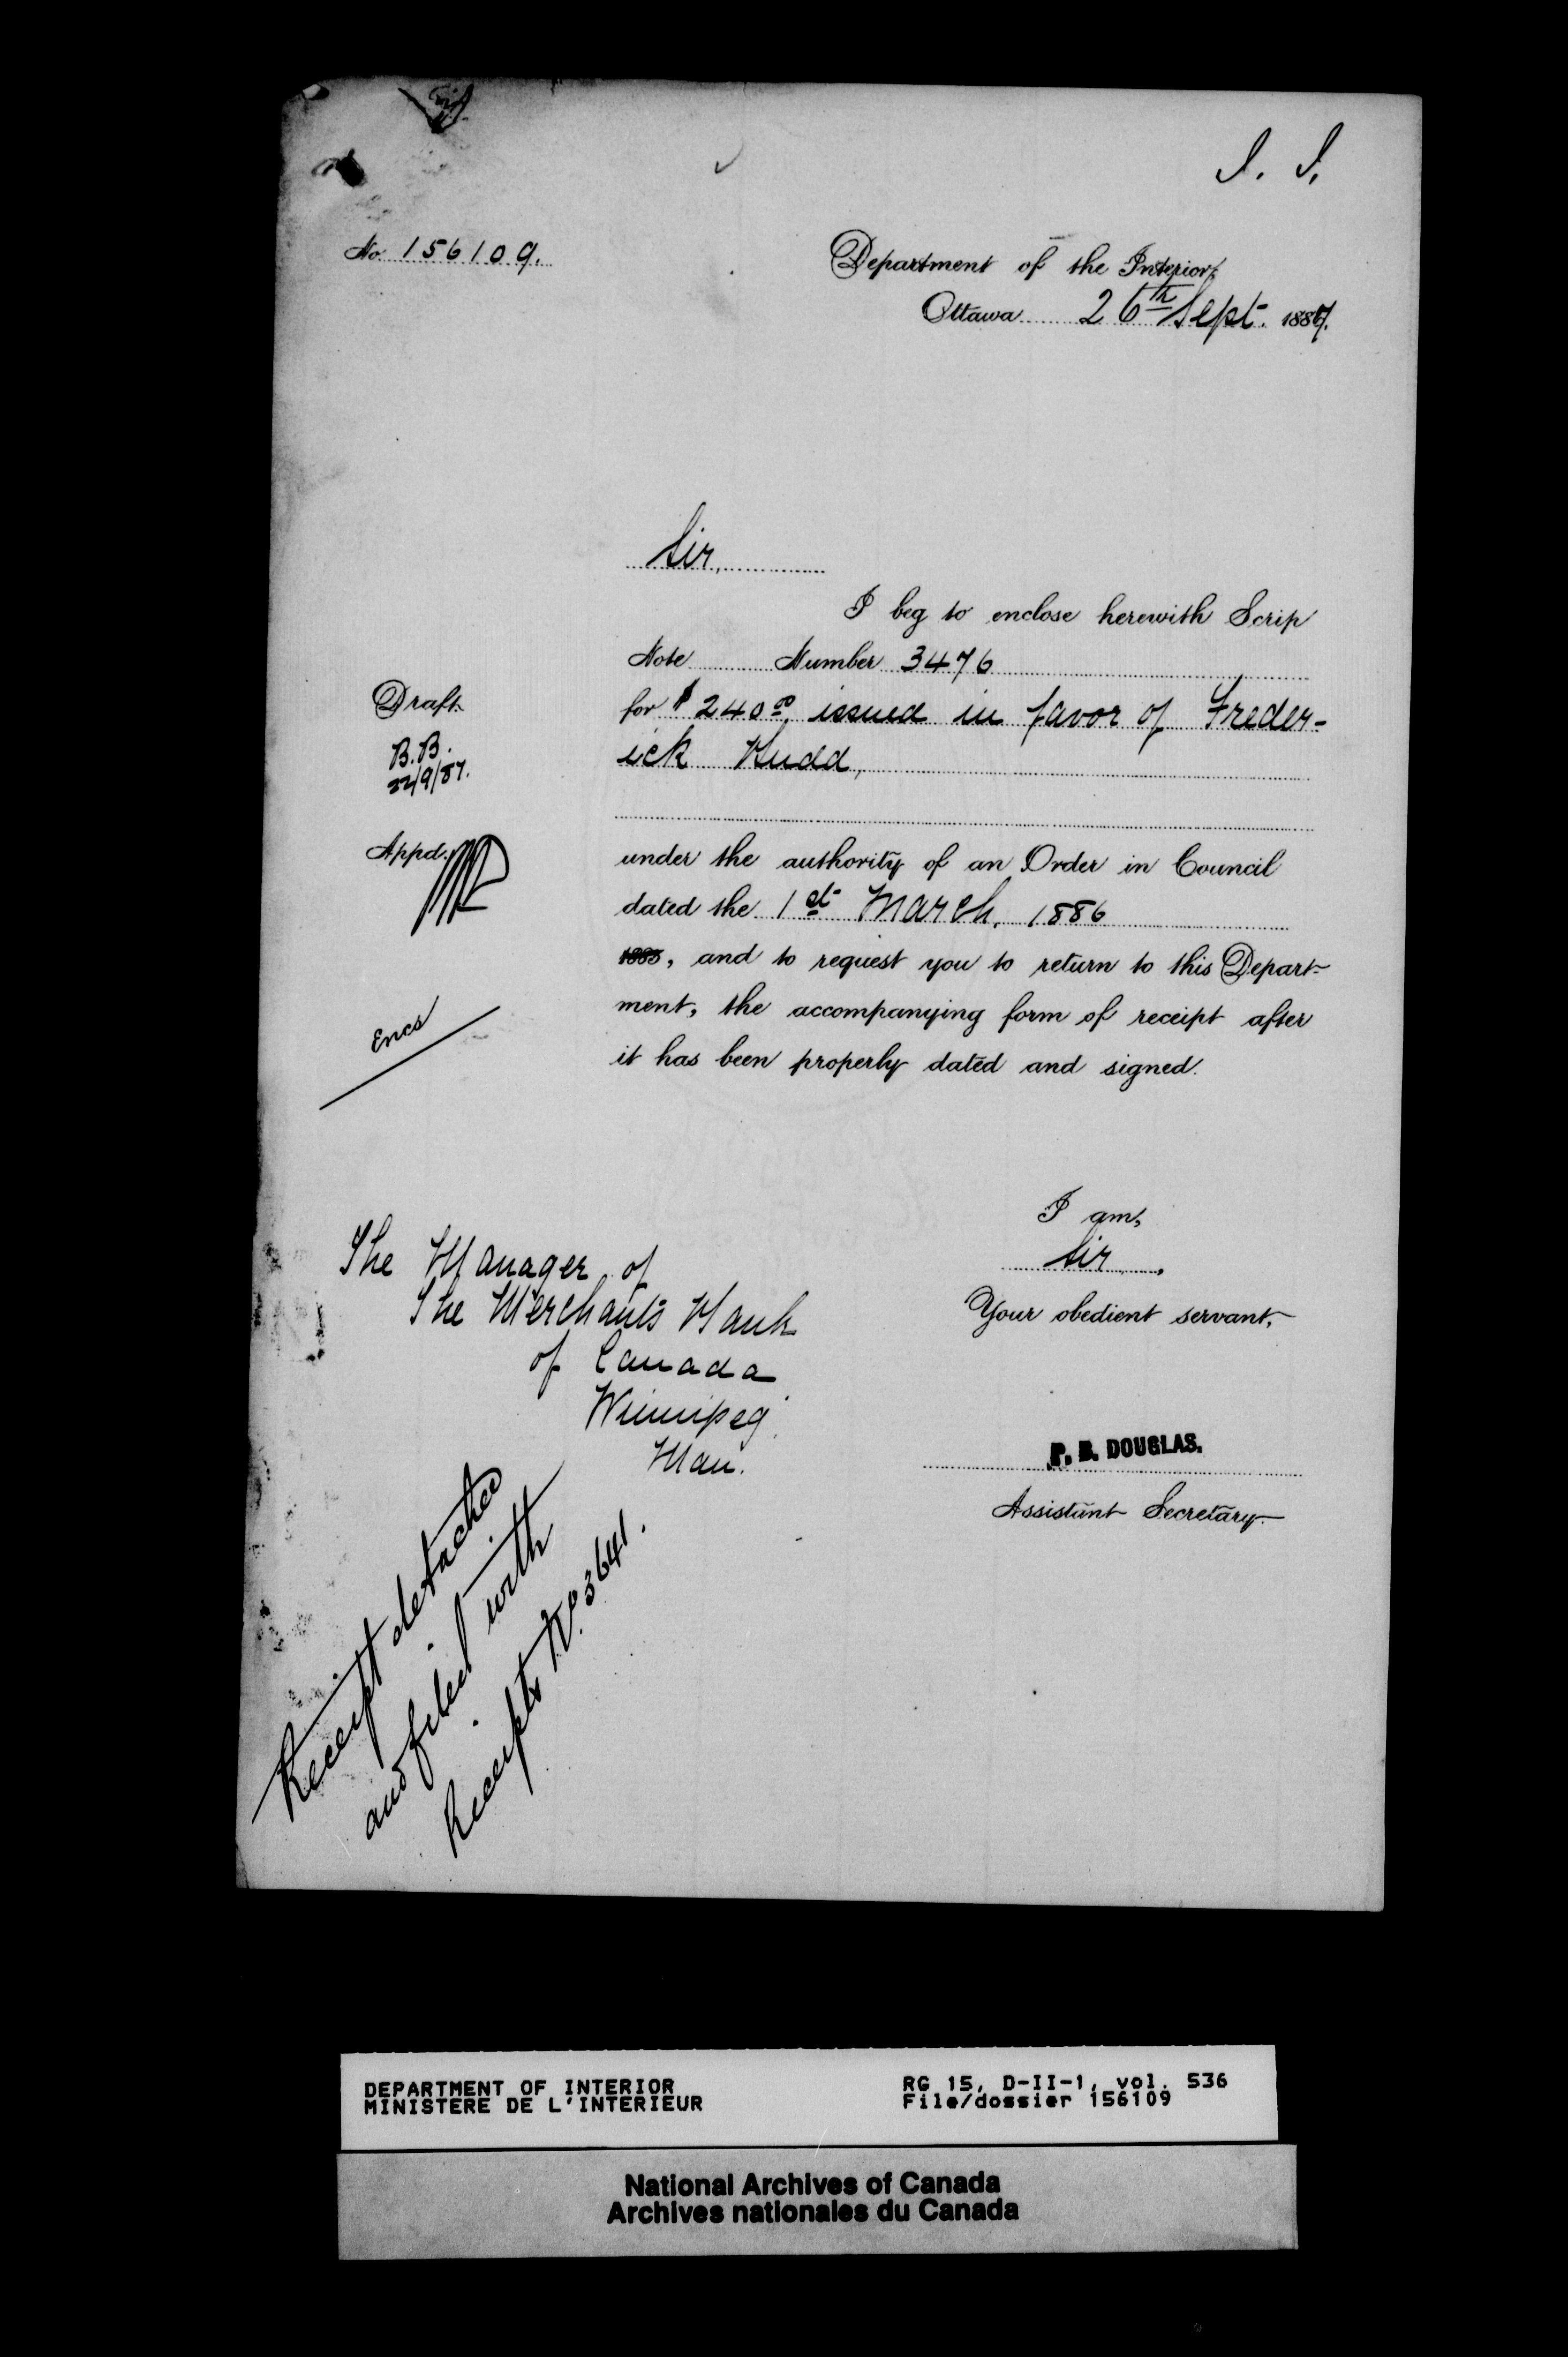 No 156109.
Department of the Interior,
Ottawa 26th Sept. 1887.
Sir,
I beg to enclose herewith Scrip
Note Number 3476
for $240.00 issued in favor of Freder-
ick
under the authority of an Order in Council
dated the 1st March, 1886
1885, and to request you to return to this Depart-
ment, the accompanying form of receipt after
it has been properly dated and signed.
Draft
B.B.
22/9/87.
Appd.
Encs
I am,
Sir,
Your obedient servant,
P. B. DOUGLAS.
Assistant Secretary.
The Manager of
The Merchants Bank
of Canada
Winnipeg
Man.
Receipt detached
and filed with
Receipts No. 3641.
DEPARTMENT OF INTERIOR
MINISTERE DE L'INTERIEUR
RG 15, D-II-1, vol. 536
File/dossier 156109
National Archives of Canada
Archives nationales du Canada